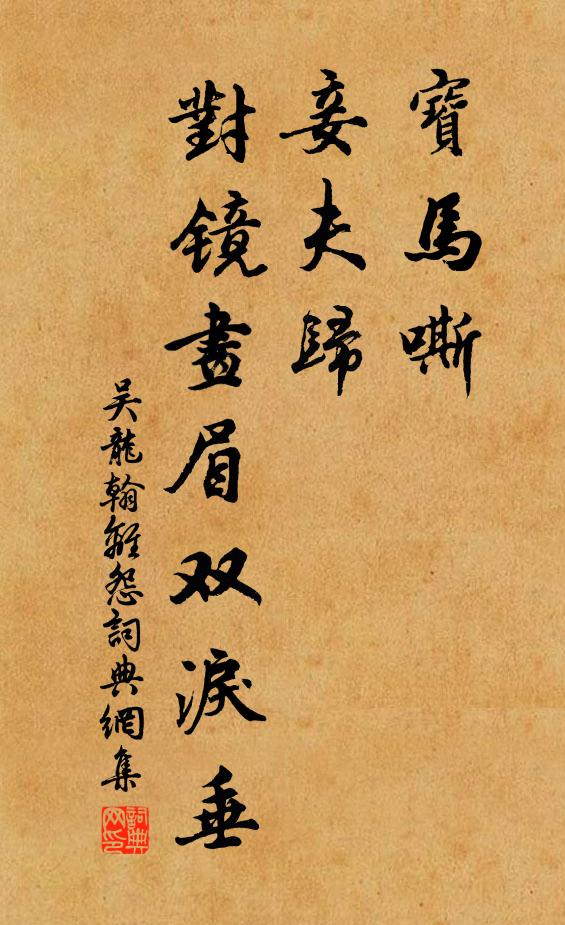 寶馬嘶
妾夫歸
對镜畫眉双淚垂
吴龍翰離怨詞典網集
詞典网印